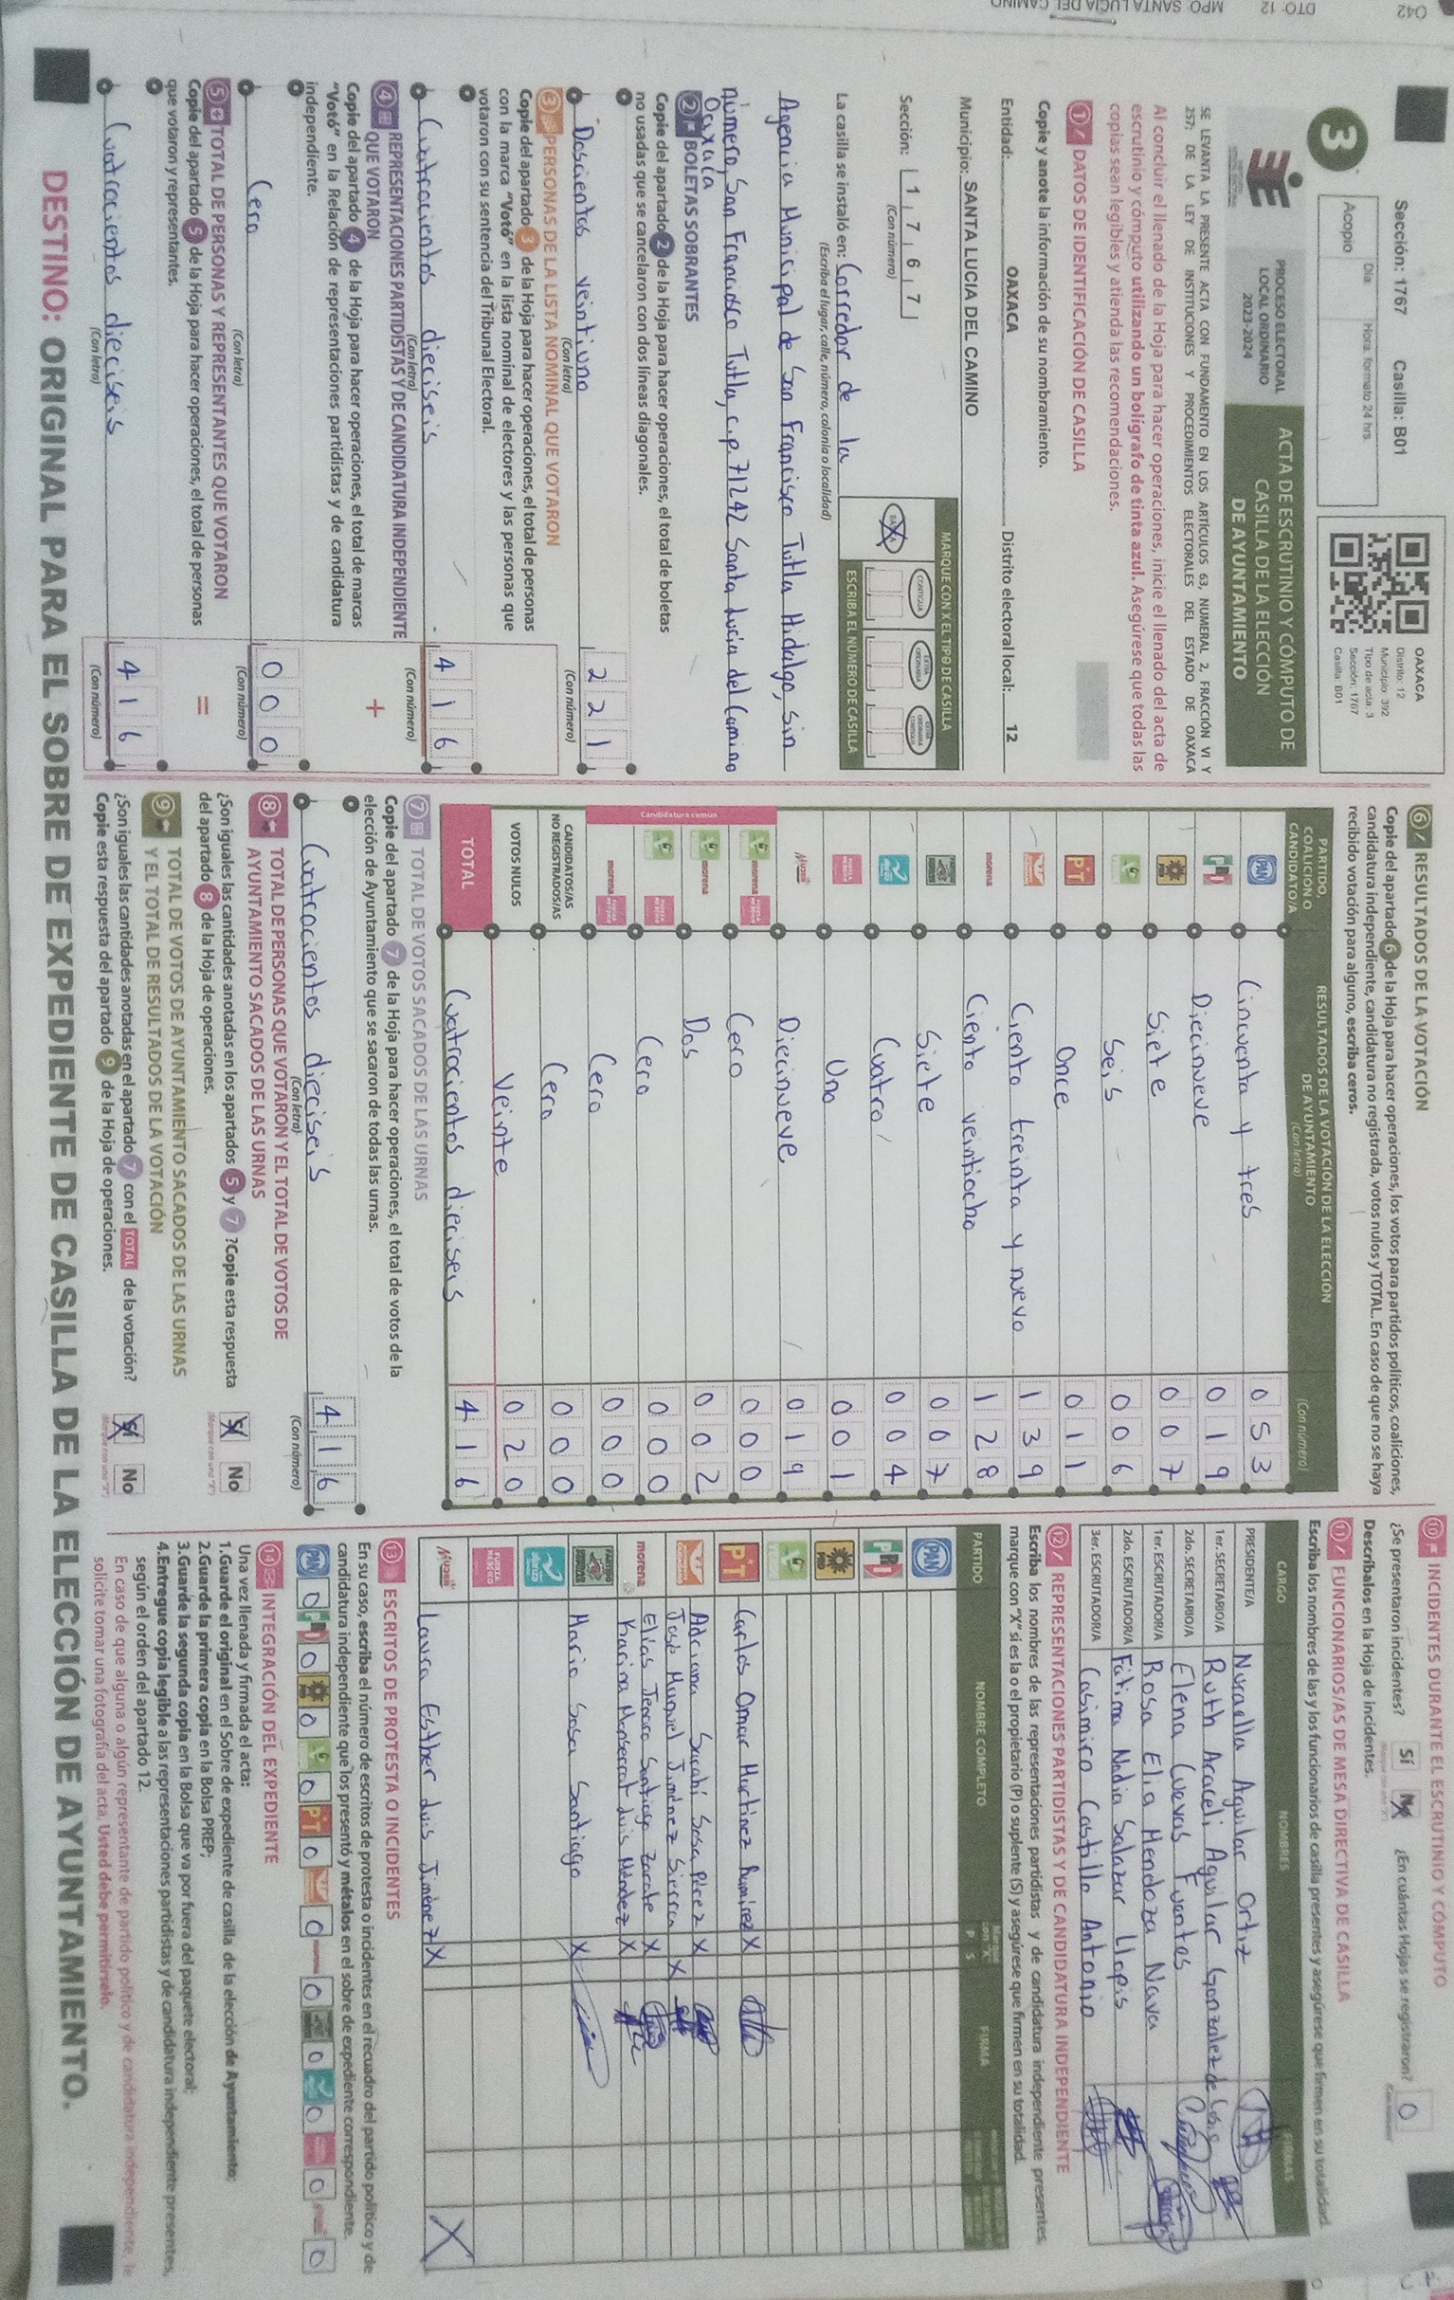 042
DTO: 12 MPO: SANTA LUCIA DEL CAMINO
Sección: 1767 Casilla: B01
Día Hora: formato 24 hrs.
Acopio
OAXACA
Distrito: 12
Municipio: 392
Tipo de acta: 3
Sección: 1767
Casilla: B01
3
PROCESO ELECTORAL
LOCAL ORDINARIO
2023-2024
ACTA DE ESCRUTINIO Y CÓMPUTO DE
CASILLA DE LA ELECCIÓN
DE AYUNTAMIENTO
SE LEVANTA LA PRESENTE ACTA CON FUNDAMENTO EN LOS ARTÍCULOS 63, NUMERAL 2, FRACCIÓN VI Y
257; DE LA LEY DE INSTITUCIONES Y PROCEDIMIENTOS ELECTORALES DEL ESTADO DE OAXACA
Al concluir el llenado de la Hoja para hacer operaciones, inicie el llenado del acta de
escrutinio y cómputo utilizando un bolígrafo de tinta azul. Asegúrese que todas las
copias sean legibles y atienda las recomendaciones.
1 DATOS DE IDENTIFICACIÓN DE CASILLA
Copie y anote la información de su nombramiento.
Entidad: OAXACA Distrito electoral local: 12
Municipio: SANTA LUCIA DEL CAMINO
Sección: 1 7 6 7
(Con número)
MARQUE CON X EL TIPO DE CASILLA
CONTIGUA
ESCRIBA EL NÚMERO DE CASILLA
La casilla se instaló en: Corredor de la
(Escriba el lugar, calle, número, colonia o localidad)
Agencia Municipal de San Francisco Tutla Hidalgo, sin
número, San Francisco Tutla, c.p. 71242 Santa Lucia del Camino
Oaxaca
2 BOLETAS SOBRANTES
Copie del apartado 2 de la Hoja para hacer operaciones, el total de boletas
no usadas que se cancelaron con dos líneas diagonales.
Doscientos veintiuno 221
(Con letra) (Con número)
3 PERSONAS DE LA LISTA NOMINAL QUE VOTARON
Copie del apartado 3 de la Hoja para hacer operaciones, el total de personas
con la marca "Votó" en la lista nominal de electores y las personas que
votaron con su sentencia del Tribunal Electoral.
Cuatrocientos dieciseis 416
(Con letra) (Con número)
4 REPRESENTACIONES PARTIDISTAS Y DE CANDIDATURA INDEPENDIENTE
QUE VOTARON +
Copie del apartado 4 de la Hoja para hacer operaciones, el total de marcas
"Votó" en la Relación de representaciones partidistas y de candidatura
independiente.
Cero 000
(Con letra) (Con número)
5 TOTAL DE PERSONAS Y REPRESENTANTES QUE VOTARON =
Copie del apartado 5 de la Hoja para hacer operaciones, el total de personas
que votaron y representantes.
Cuatrocientos dieciseis 416
(Con letra) (Con número)
6 RESULTADOS DE LA VOTACIÓN
Copie del apartado 6 de la Hoja para hacer operaciones, los votos para partidos políticos, coaliciones,
candidatura independiente, candidatura no registrada, votos nulos y TOTAL. En caso de que no se haya
recibido votación para alguno, escriba ceros.
PARTIDO,
COALICIÓN O
CANDIDATO/A
RESULTADOS DE LA VOTACIÓN DE LA ELECCIÓN
DE AYUNTAMIENTO
(Con letra) (Con número)
PAN Cincuenta y tres 053
PRI Diecinueve 019
Siete 007
Seis 006
PT Once 011
Ciento treinta y nuevo 139
morena Ciento veintiocho 128
Siete 007
Cuatro 004
Uno 001
Mujer Diecinueve 019
Candidatura común
morena Cero 000
morena Dos 002
Cero 000
morena Cero 000
CANDIDATOS/AS
NO REGISTRADOS/AS Cero 000
VOTOS NULOS Veinte 020
TOTAL Cuatrocientos dieciseis 416
7 TOTAL DE VOTOS SACADOS DE LAS URNAS
Copie del apartado 7 de la Hoja para hacer operaciones, el total de votos de la
elección de Ayuntamiento que se sacaron de todas las urnas.
Cuatrocientos dieciseis 416
(Con letra) (Con número)
8 TOTAL DE PERSONAS QUE VOTARON Y EL TOTAL DE VOTOS DE
AYUNTAMIENTO SACADOS DE LAS URNAS
¿Son iguales las cantidades anotadas en los apartados 5 y 7 ? Copie esta respuesta
del apartado 8 de la Hoja de operaciones.
Sí No
9 TOTAL DE VOTOS DE AYUNTAMIENTO SACADOS DE LAS URNAS
Y EL TOTAL DE RESULTADOS DE LA VOTACIÓN
¿Son iguales las cantidades anotadas en el apartado 7 con el TOTAL de la votación?
Copie esta respuesta del apartado 9 de la Hoja de operaciones.
Sí No
10 INCIDENTES DURANTE EL ESCRUTINIO Y CÓMPUTO
¿Se presentaron incidentes? Sí No ¿En cuántas Hojas se registraron? 0
Descríbalos en la Hoja de incidentes.
11 FUNCIONARIOS/AS DE MESA DIRECTIVA DE CASILLA
Escriba los nombres de las y los funcionarios de casilla presentes y asegúrese que firmen en su totalidad.
CARGO NOMBRES FIRMAS
PRESIDENTE/A Nuraella Aguilar Ortiz
1er. SECRETARIO/A Ruth Araceli Aguilar Gonzalez de Cosio
2do. SECRETARIO/A Elena Cuevas Fuentes
1er. ESCRUTADOR/A Rosa Elia Mendoza Nava
2do. ESCRUTADOR/A Fátima Nadia Salazar Llopis
3er. ESCRUTADOR/A Casimiro Castillo Antonio
12 REPRESENTACIONES PARTIDISTAS Y DE CANDIDATURA INDEPENDIENTE
Escriba los nombres de las representaciones partidistas y de candidatura independiente presentes,
marque con "X" si es la o el propietario (P) o suplente (S) y asegúrese que firmen en su totalidad.
PARTIDO NOMBRE COMPLETO P S FIRMA
PAN
PRI
PT Carlos Omar Martinez Ramirez X
Adriana Sarahí Sosa Pérez X
José Miguel Jiménez Sierra X
morena Elias Tenoro Santiago Zarate X
Karina Monserrat Luis Méndez X
Mario Sosa Santiago X
Mujer Laura Esther Luis Jiménez X X
13 ESCRITOS DE PROTESTA O INCIDENTES
En su caso, escriba el número de escritos de protesta o incidentes en el recuadro del partido político y de
candidatura independiente que los presentó y métalos en el sobre de expediente correspondiente.
PAN 0 PRI 0 0 0 PT 0 0 0 0 0 0 0
14 INTEGRACIÓN DEL EXPEDIENTE
Una vez llenada y firmada el acta:
1.Guarde el original en el Sobre de expediente de casilla de la elección de Ayuntamiento;
2.Guarde la primera copia en la Bolsa PREP;
3.Guarde la segunda copia en la Bolsa que va por fuera del paquete electoral;
4.Entregue copia legible a las representaciones partidistas y de candidatura independiente presentes,
según el orden del apartado 12.
En caso de que alguna o algún representante de partido político y de candidatura independiente, le
solicite tomar una fotografía del acta, Usted debe permitírselo.
DESTINO: ORIGINAL PARA EL SOBRE DE EXPEDIENTE DE CASILLA DE LA ELECCIÓN DE AYUNTAMIENTO.